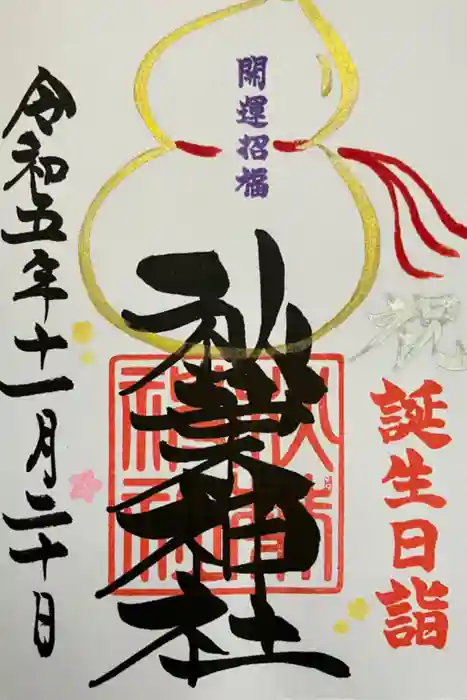 祝
誕生日詣
開運招福
秋葉神社
令和五年十一月二十日